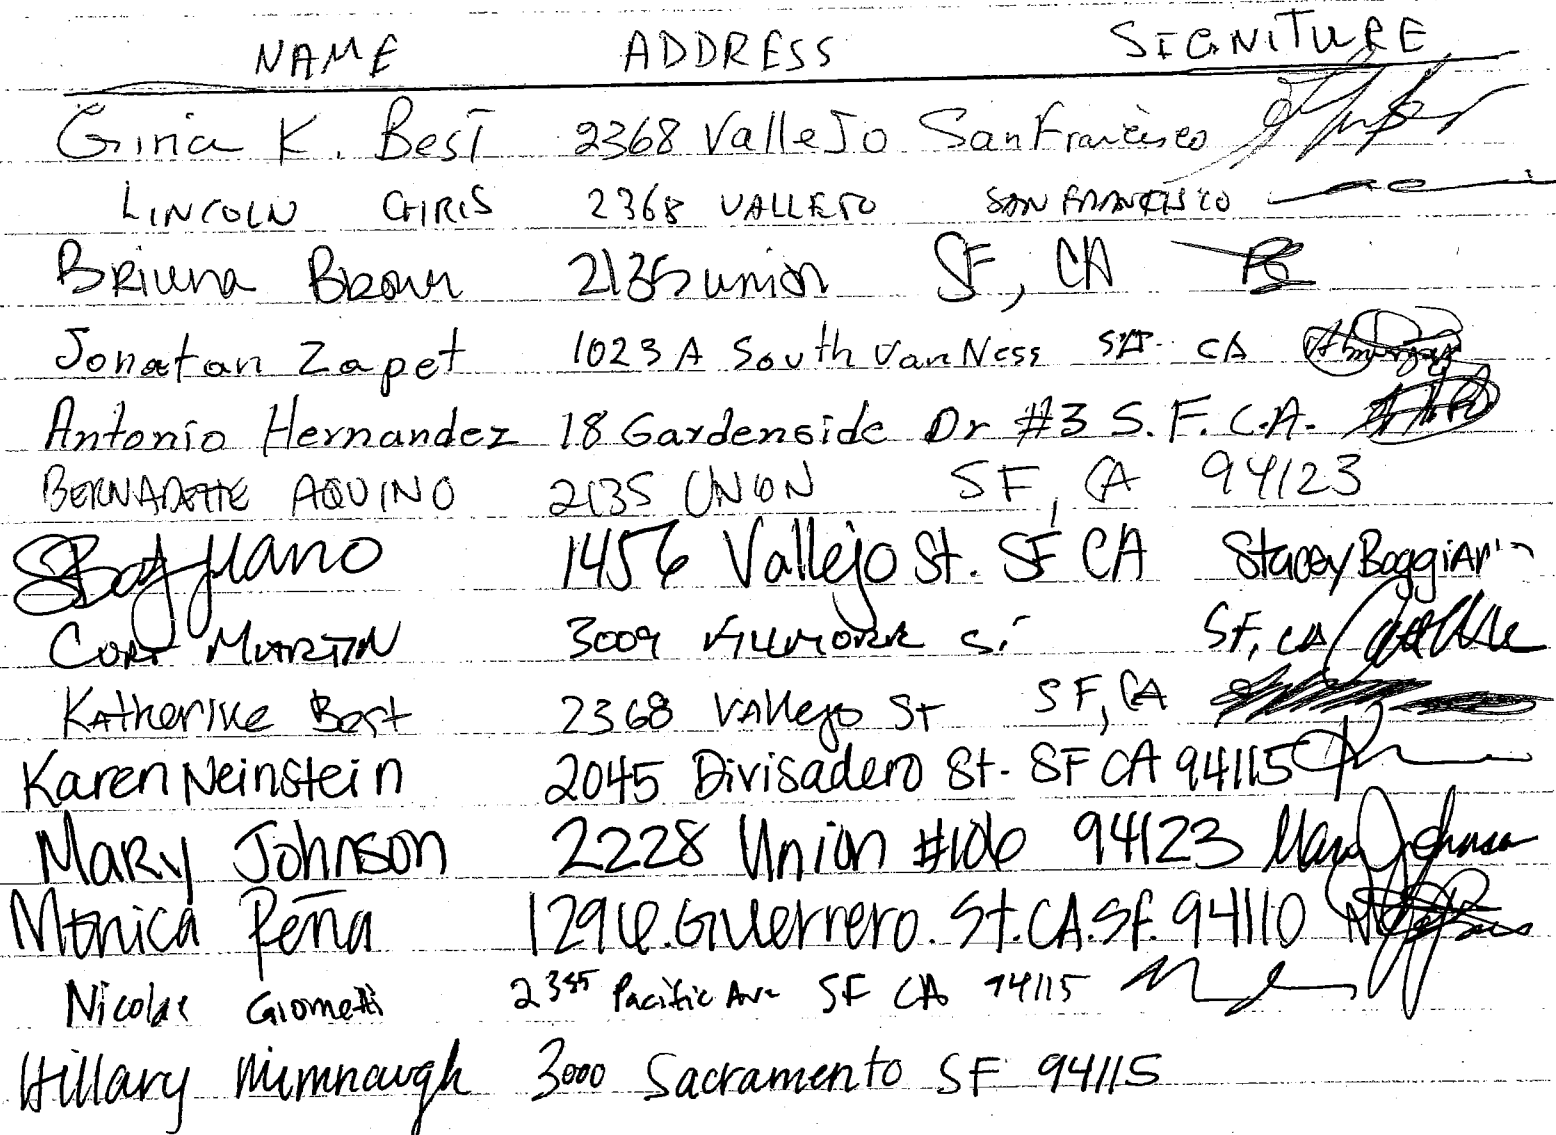 NAME ADDRESS SIGNITURE
Gina K. Best 2368 Vallejo San Francisco
LINCOLN CHRIS 2368 VALLEJO SAN FRANCISCO
BRiunna BROWN 2135 union SF, CA
Jonatan Zapet 1023 A South Van Ness SF CA
Antonio Hernandez 18 Gardenside Dr #3 S.F. C.A.
BERNADETTE AQUINO 2135 UNION SF, CA 94123
SBoggiano 1456 Vallejo St. SF CA Stacey Boggiano
MARTIN 3009 FILLMORE ST SF, CA
Katherine Best 2368 Vallejo St SF, CA
Karen Neinstein 2045 Divisadero St. SF CA 94115
Mary Johnson 2228 Union #106 94123 Mary Johnson
Monica Peña 1296.Guerrero.St.CA.SF.94110
Nicolas Giometti 2355 Pacific Ave SF CA 94115
Hillary Mimnaugh 3000 Sacramento SF 94115